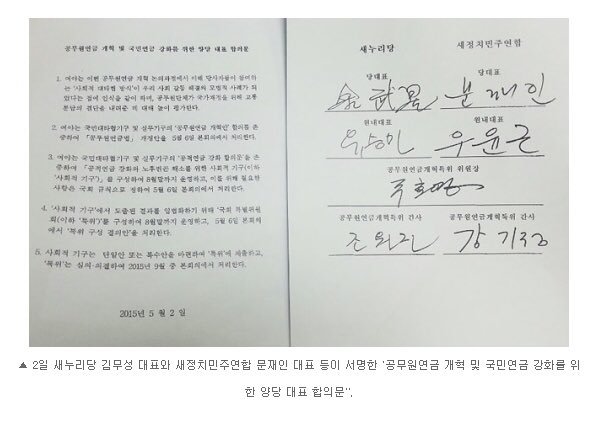 공무원연금 개혁 및 국민연금 강화를 위한 양당 대표 합의문
1. 여야는 이번 공무원연금 개혁 논의과정에서 이해 당사자들이 참여하
는 '사회적 대타협 방식'이 우리 사회 갈등 해결의 모범적 사례가 되
었다는 점에 인식을 같이 하며, 공무원단체가 국가재정을 위해 고통
분담의 결단을 내려준 데 대해 높이 평가한다.
2. 여야는 국민대타협기구 및 실무기구의 '공무원연금 개혁안' 합의를 존
중하여 「공무원연금법」 개정안을 5월 6일 본회의에서 처리한다.
3. 여야는 국민대타협기구 및 실무기구의 "공적연금 강화 합의문"을 존
중하여 「공적연금 강화와 노후빈곤 해소를 위한 사회적 기구(이하
'사회적 기구')」를 구성하여 8월말까지 운영하고, 이를 위해 필요한
사항은 국회 규칙으로 정하여 5월 6일 본회의에서 처리한다.
4. '사회적 기구'에서 도출된 결과를 입법화하기 위해 '국회 특별위원
회(이하 '특위')를 구성하여 8월말까지 운영하고, 5월 6일 본회의
에서 '특위 구성 결의안'을 처리한다.
5. 사회적 기구는 단일안 또는 복수안을 마련하여 '특위'에 제출하고,
'특위'는 심의·의결하여 2015년 9월 중 본회의에서 처리한다.
2015년 5월 2일
새누리당 새정치민주연합
당대표 당대표
金武星 문재인
원내대표 원내대표
유승민 우윤근
공무원연금개혁특위 위원장
주호영
공무원연금개혁특위 간사 공무원연금개혁특위 간사
조원진 강기정
▲ 2일 새누리당 김무성 대표와 새정치민주연합 문재인 대표 등이 서명한 '공무원연금 개혁 및 국민연금 강화를 위
한 양당 대표 합의문".